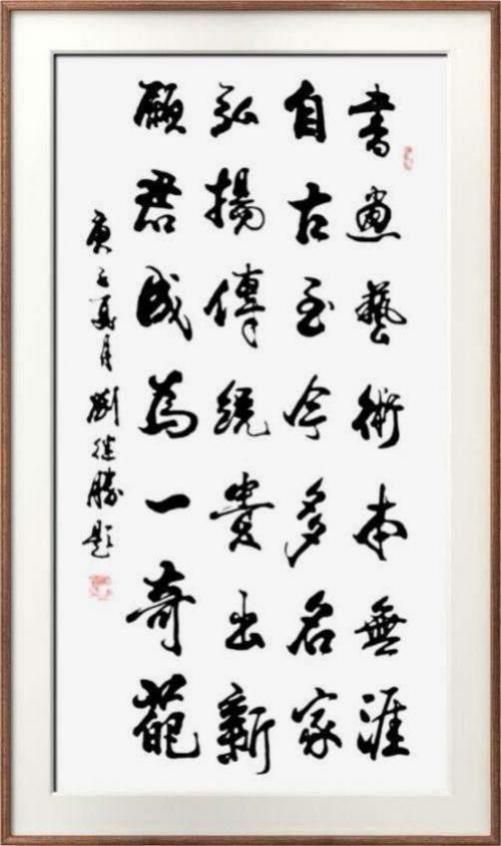 書畫藝術本無涯
自古至今多名家
弘揚傳統貴出新
願君成為一奇葩
庚子夏月劉繼勝題